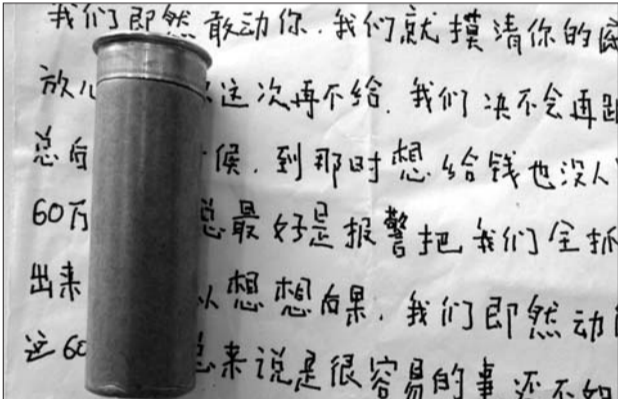 我们即然敢动你.我们就摸清你的
放 这次再不给.我们决不会再
总 候.到那时想给钱也没人
60万 总最好是报警把我们全抓
出来 以想想后果.我们即然动
这60 总来说是很容易的事还不如